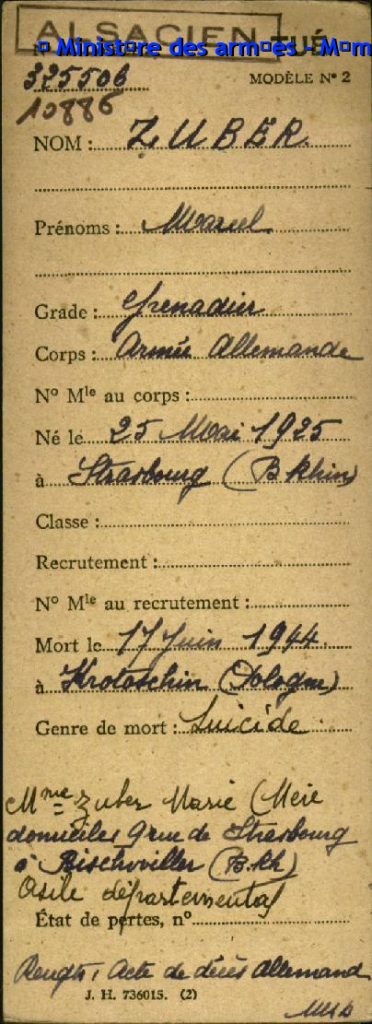 ALSACIEN TUÉ
¤ Minist¤re des arm¤es - M¤m
325506
MODÈLE N° 2
10886
NOM : ZUBER
Prénoms : Marcel
Grade : Grenadier
Corps : Armée Allemande
N° Mle au corps :
Né le 25 Mai 1925
à Strasbourg (B Rhin)
Classe :
Recrutement :
N° Mle au recrutement :
Mort le 17 Juin 1944
à Krotoschin (Pologne)
Genre de mort : Suicide
Mme Zuber Marie (Mère
domiciliée 9 rue de Strasbourg
à Bischwiller (B.Rh)
Asile départemental
État de pertes, n°
Rengts : Acte de décès Allemand
J. H. 736015. (2)